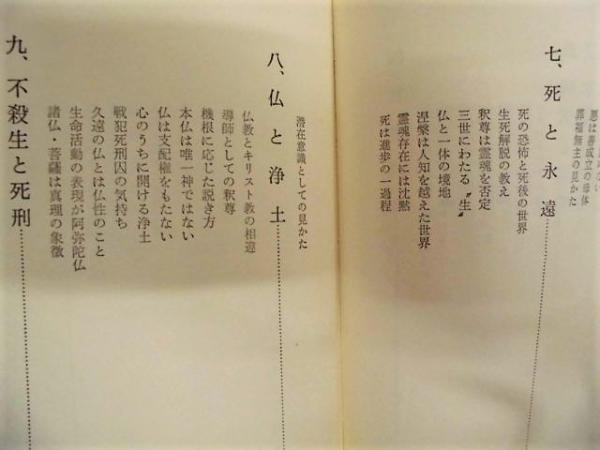 悪は善成立の母体
罪福無主の見かた
七、死と永遠
死の恐怖と死後の世界
生死解説の教え
釈尊は霊魂を否定
三世にわたる〝生〟
仏と一体の境地
涅槃は人知を越えた世界
霊魂存在には沈黙
死は進歩の一過程
潜在意識としての見かた
八、仏と浄土
仏教とキリスト教の相違
導師としての釈尊
機根に応じた説き方
本仏は唯一神ではない
仏は支配権をもたない
心のうちに開ける浄土
戦犯死刑囚の気持ち
久遠の仏とは仏性のこと
生命活動の表現が阿弥陀仏
諸仏・菩薩は真理の象徴
九、不殺生と死刑